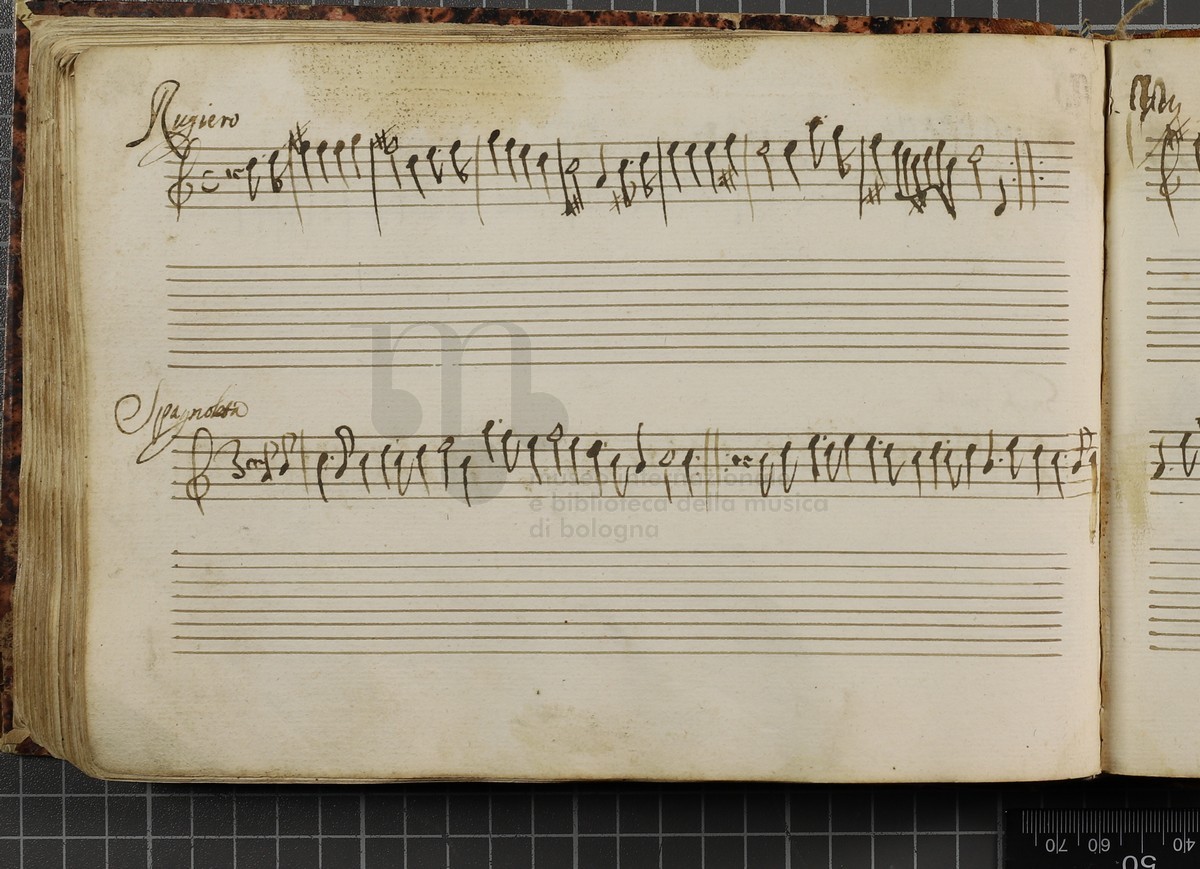 Rugiero
Spagnoleta
museo internazionale
e biblioteca della musica
di bologna
70 60 50 40